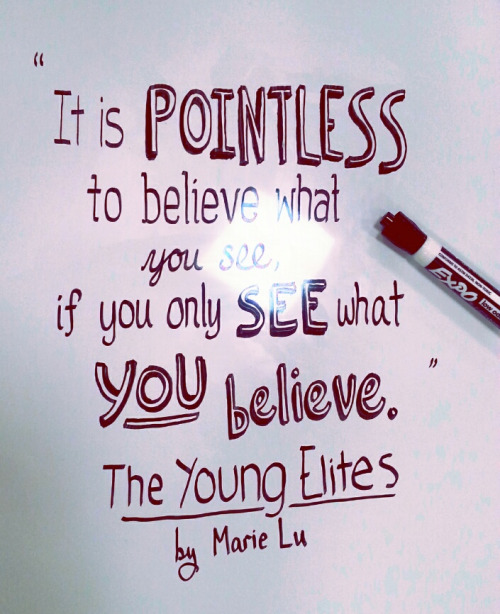 "It is POINTLESS
to believe what
you see,
if you only SEE what
YOU believe."
The Young Elites
by Marie Lu
EXPO